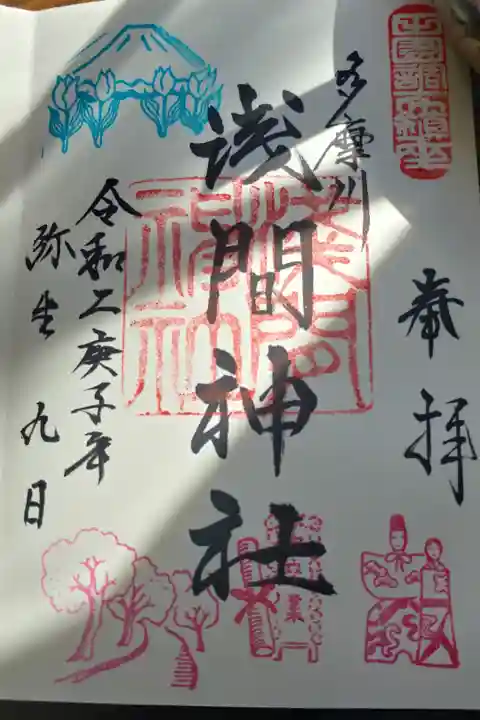 奉拝
多摩川
浅間神社
令和二庚子年
弥生 九日